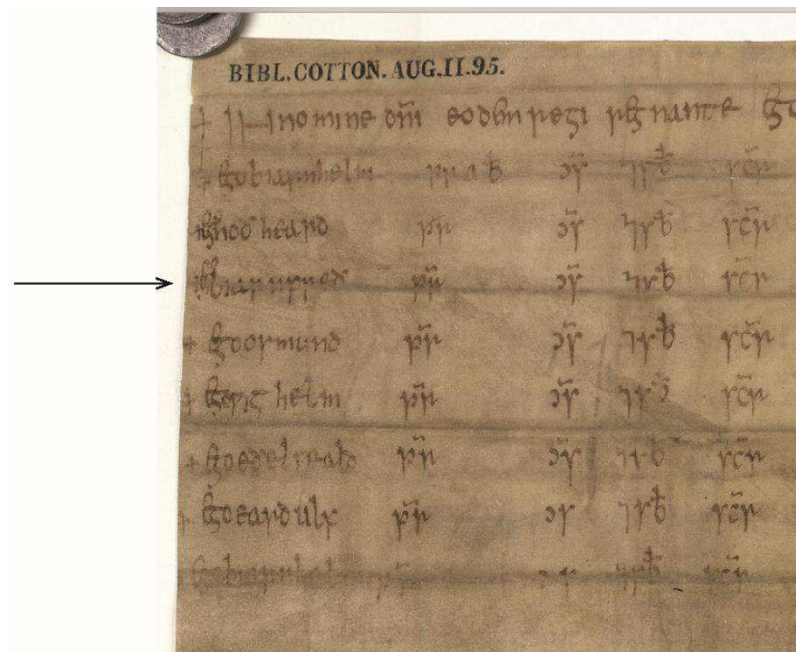 BIBL.COTTON.AUG.II.95.
+ In nomine dn̄i regi regnante
+ ego biarnhelm pr̄ ab̄ ɔs̄ ⁊ sb̄ scr̄
+ ego nodheard pr̄ ɔs̄ ⁊ sb̄ scr̄
+ ego biarnfred pr̄ ɔs̄ ⁊ sb̄ scr̄
+ ego osmund pr̄ ɔs̄ ⁊ sb̄ scr̄
+ ego wighelm pr̄ ɔs̄ ⁊ sb̄ scr̄
+ ego eðelweald pr̄ ɔs̄ ⁊ sb̄ scr̄
+ ego eardulf pr̄ ɔs̄ ⁊ sb̄ scr̄
+ ego biarnhelm pr̄ ɔs̄ ⁊ sb̄ scr̄